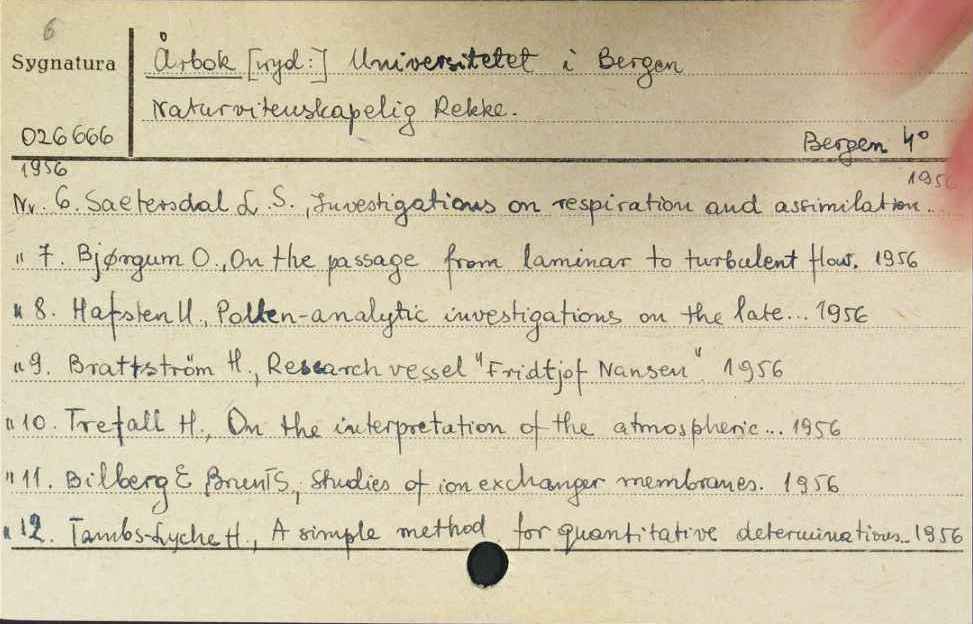 6
Sygnatura Årbok [wyd:] Universitetet i Bergen
Naturvitenskapelig Rekke.
026666 Bergen 4°
1956 1956
Nr. 6. Saetersdal L. S., Investigations on respiration and assimilation..
" 7. Bjørgum O., On the passage from laminar to turbulent flow. 1956
" 8. Hafsten U., Pollen-analytic investigations on the late... 1956
" 9. Brattström H., Research vessel "Fridtjof Nansen". 1956
" 10. Trefall H., On the interpretation of the atmospheric... 1956
" 11. Bilberg E Brun T S, Studies of ion exchanger membranes. 1956
" 12. Tambs-Lyche H., A simple method for quantitative determinations.. 1956